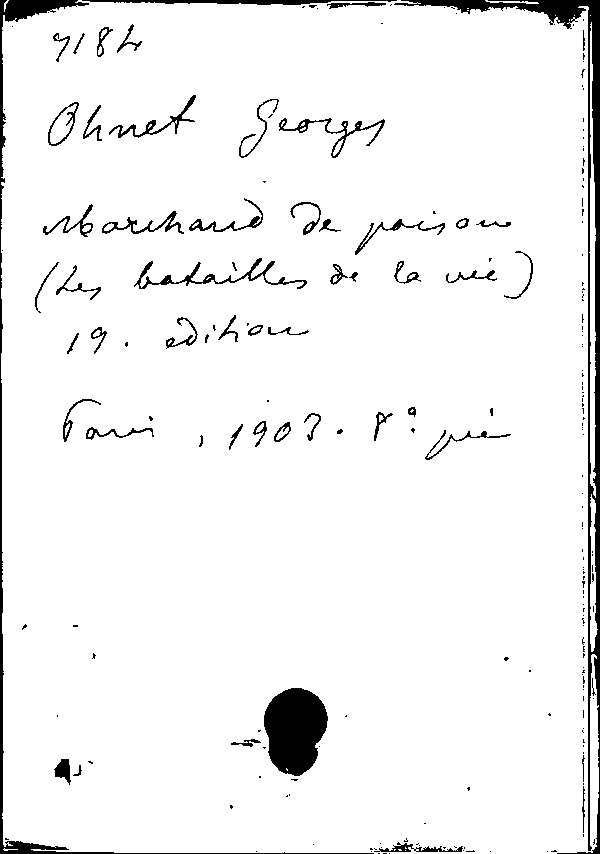 7184
Ohnet Georges
Marchand de poison
(Les batailles de la vie)
19. edition
Paris, 1903. 8°